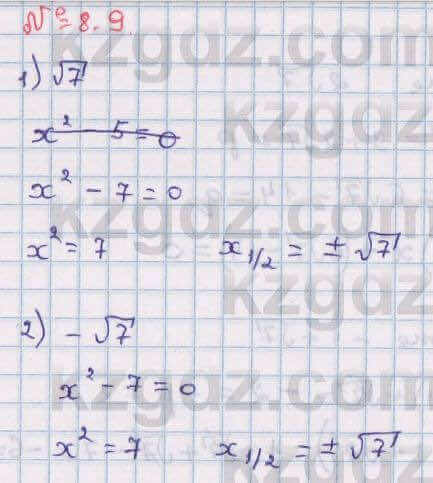 № 8.9.
1) √7
x² - 5 = 0
x² - 7 = 0
x² = 7 x₁/₂ = ± √7
2) - √7
x² - 7 = 0
x² = 7 x₁/₂ = ± √7
kzgdz.com